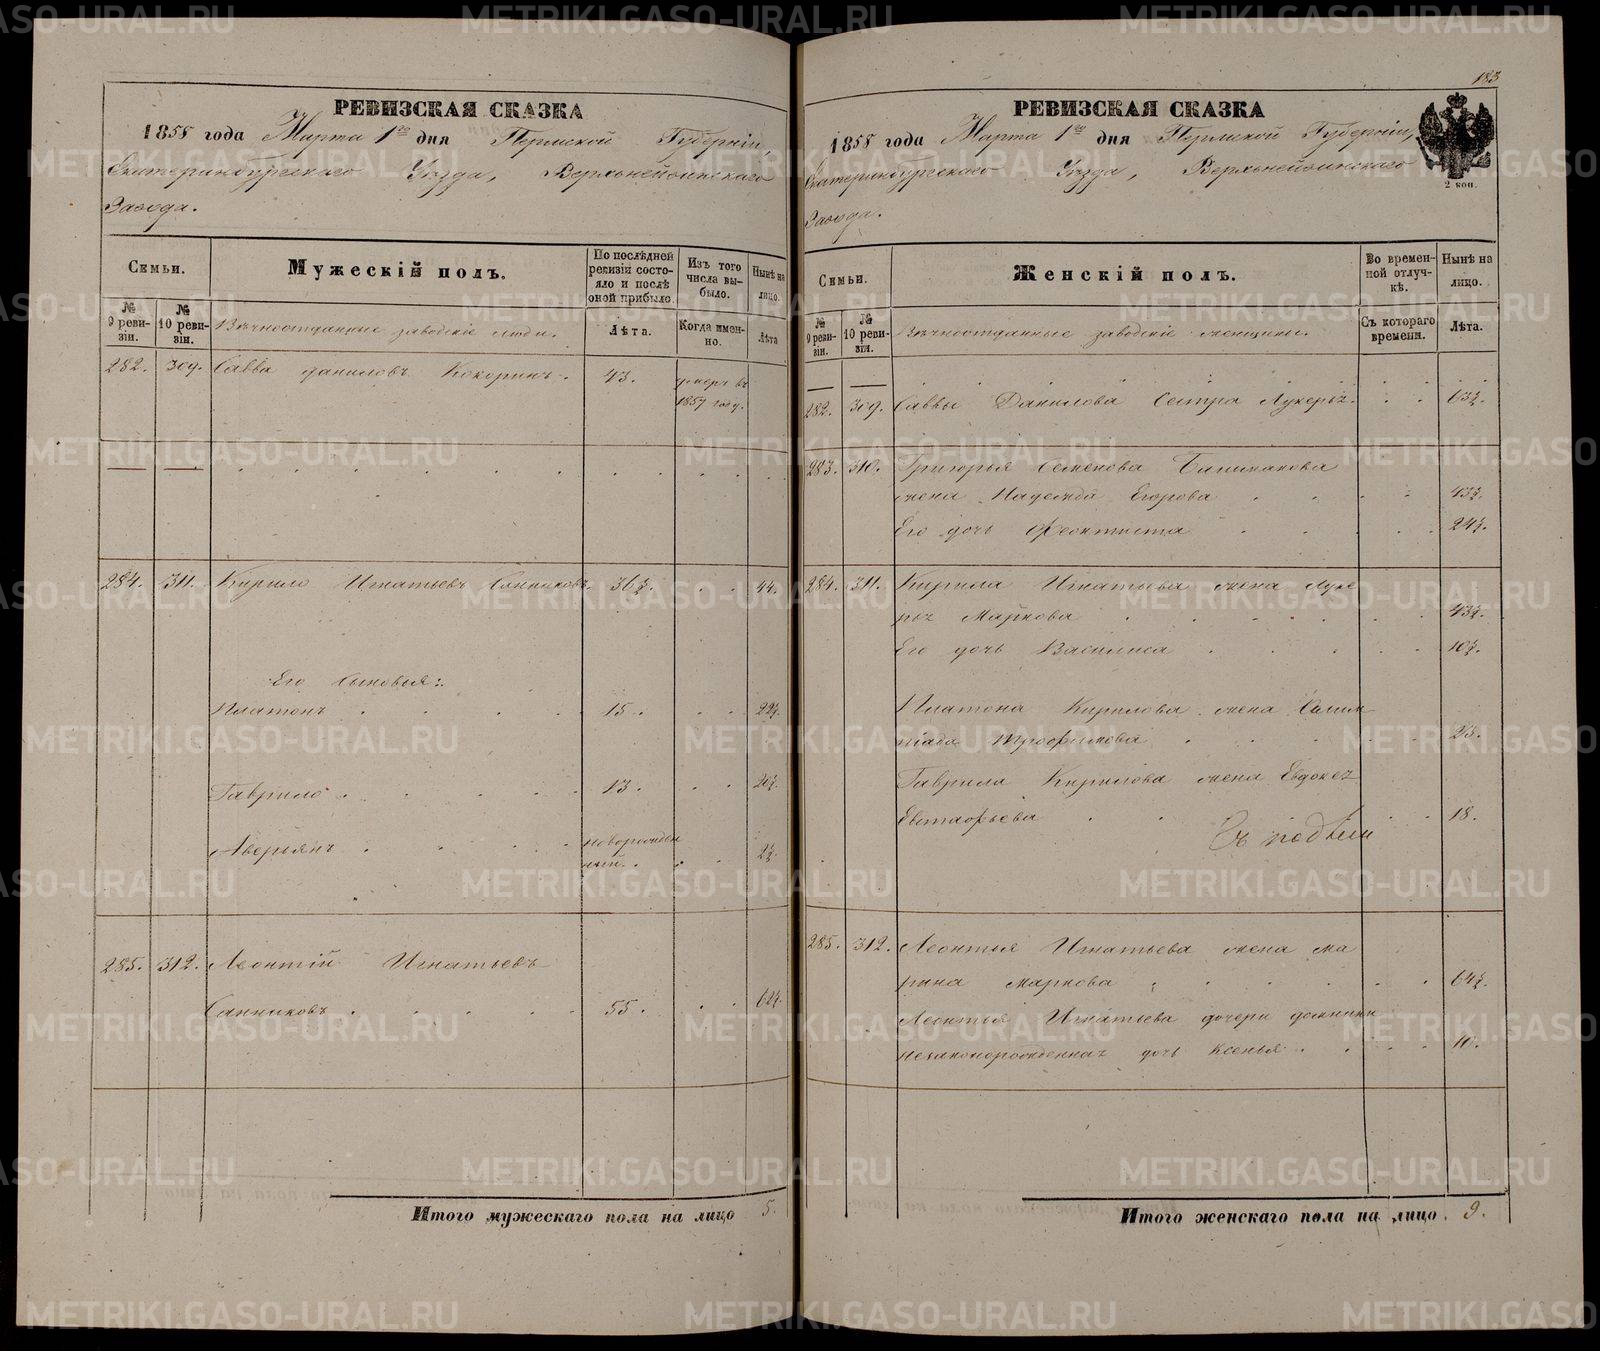 183
РЕВИЗСКАЯ СКАЗКА
1858 года Марта 1го дня Пермской Губерніи,
Екатеринбургскаго Уѣзда, Верхнейвинскаго
Завода.
Семьи.
Мужескій полъ.
По послѣдней ревизіи состояло и послѣ оной прибыло.
Изъ того числа выбыло.
Нынѣ на лицо.
№ 9 ревизіи.
№ 10 ревизіи.
Вѣчноотданные заводскіе люди.
Лѣта.
Когда именно.
Лѣта
282. 309. Савва Даниловъ Кокоринъ. 43. умеръ въ
1857 году.
284. 311. Кирило Игнатьевъ Санниковъ. 36½. 44.
Его сыновья:
Платонъ 15. 22½.
Гаврило 13. 20½.
Аверьянъ новорожден
ный. 2½.
285. 312. Леонтій Игнатьевъ
Санниковъ 55. 62½.
Итого мужескаго пола на лицо 5.
РЕВИЗСКАЯ СКАЗКА
1858 года Марта 1го дня Пермской Губерніи,
Екатеринбургскаго Уѣзда, Верхнейвинскаго
Завода.
2 коп.
Семьи.
Женскій полъ.
Во временной отлучкѣ.
Нынѣ на лицо.
№ 9 ревизіи.
№ 10 ревизіи.
Вѣчноотданные заводскіе женщины.
Съ котораго времени.
Лѣта.
282. 309. Саввы Данилова сестра Лукерья. 63½.
283. 310. Григорья Семенова
жена Надежда Егорова 43½.
Его дочь Феоктиста 24½.
284. 311. Кирила Игнатьева жена Луке
рья Маркова 43½.
Его дочь Васлиса 10½.
Платона Кирилова жена Салом
ніада Трофимова 25.
Гаврила Кирилова жена Евдокея
Евстафьева 18.
285. 312. Леонтья Игнатьева жена Ма
рина Маркова 64½.
Леонтья Игнатьева дочери Домники
незаконорожденная дочь Ксенья 10.
Итого женскаго пола на лицо 9.
METRIKI.GASO-URAL.RU